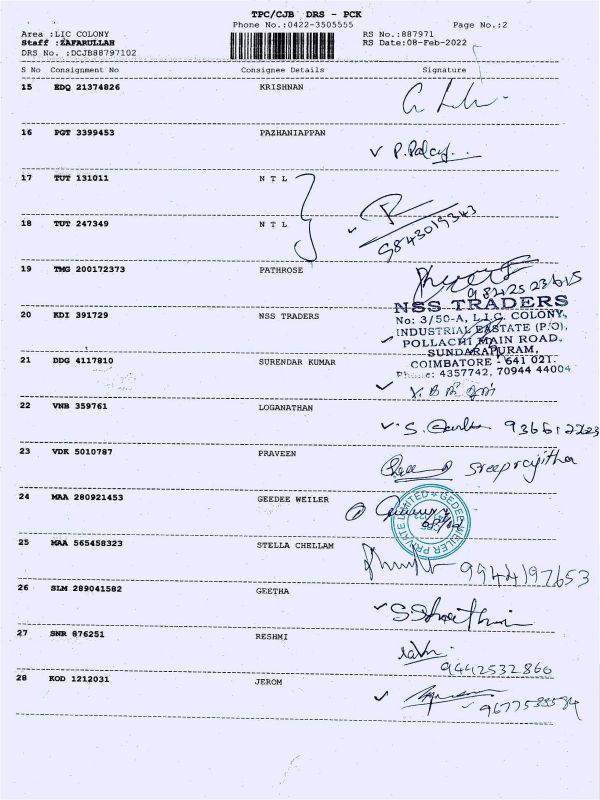 TPC/CJB DRS - PCK
Phone No.:0422-3505555 Page No.:2
Area :LIC COLONY RS No.:887971
Staff :ZAFARULLAH RS Date:08-Feb-2022
DRS No. :DCJB88797102
S No Consignment No Consignee Details Signature
15 EDQ 21374826 KRISHNAN
16 PGT 3399453 PAZHANIAPPAN
17 TUT 131011 N T L
18 TUT 247349 N T L
9843019343
19 TMG 200172373 PATHROSE
NSS TRADERS
No: 3/50-A, L.I.C. COLONY,
20 KDI 391729 NSS TRADERS
INDUSTRIAL EASTATE (P/O),
POLLACHI MAIN ROAD,
SUNDARAPURAM,
COIMBATORE - 641 021.
21 DDG 4117810 SURENDAR KUMAR
Phone: 4357742, 70944 44004
22 VNB 359761 LOGANATHAN
23 VDK 5010787 PRAVEEN
Sreeprajitha
24 MAA 280921453 GEEDEE WEILER
GEDEE WEILER PRIVATE LIMITED
25 MAA 565458323 STELLA CHELLAM
9944197653
26 SLM 289041582 GEETHA
27 SNR 876251 RESHMI
9442532860
28 KOD 1212031 JEROM